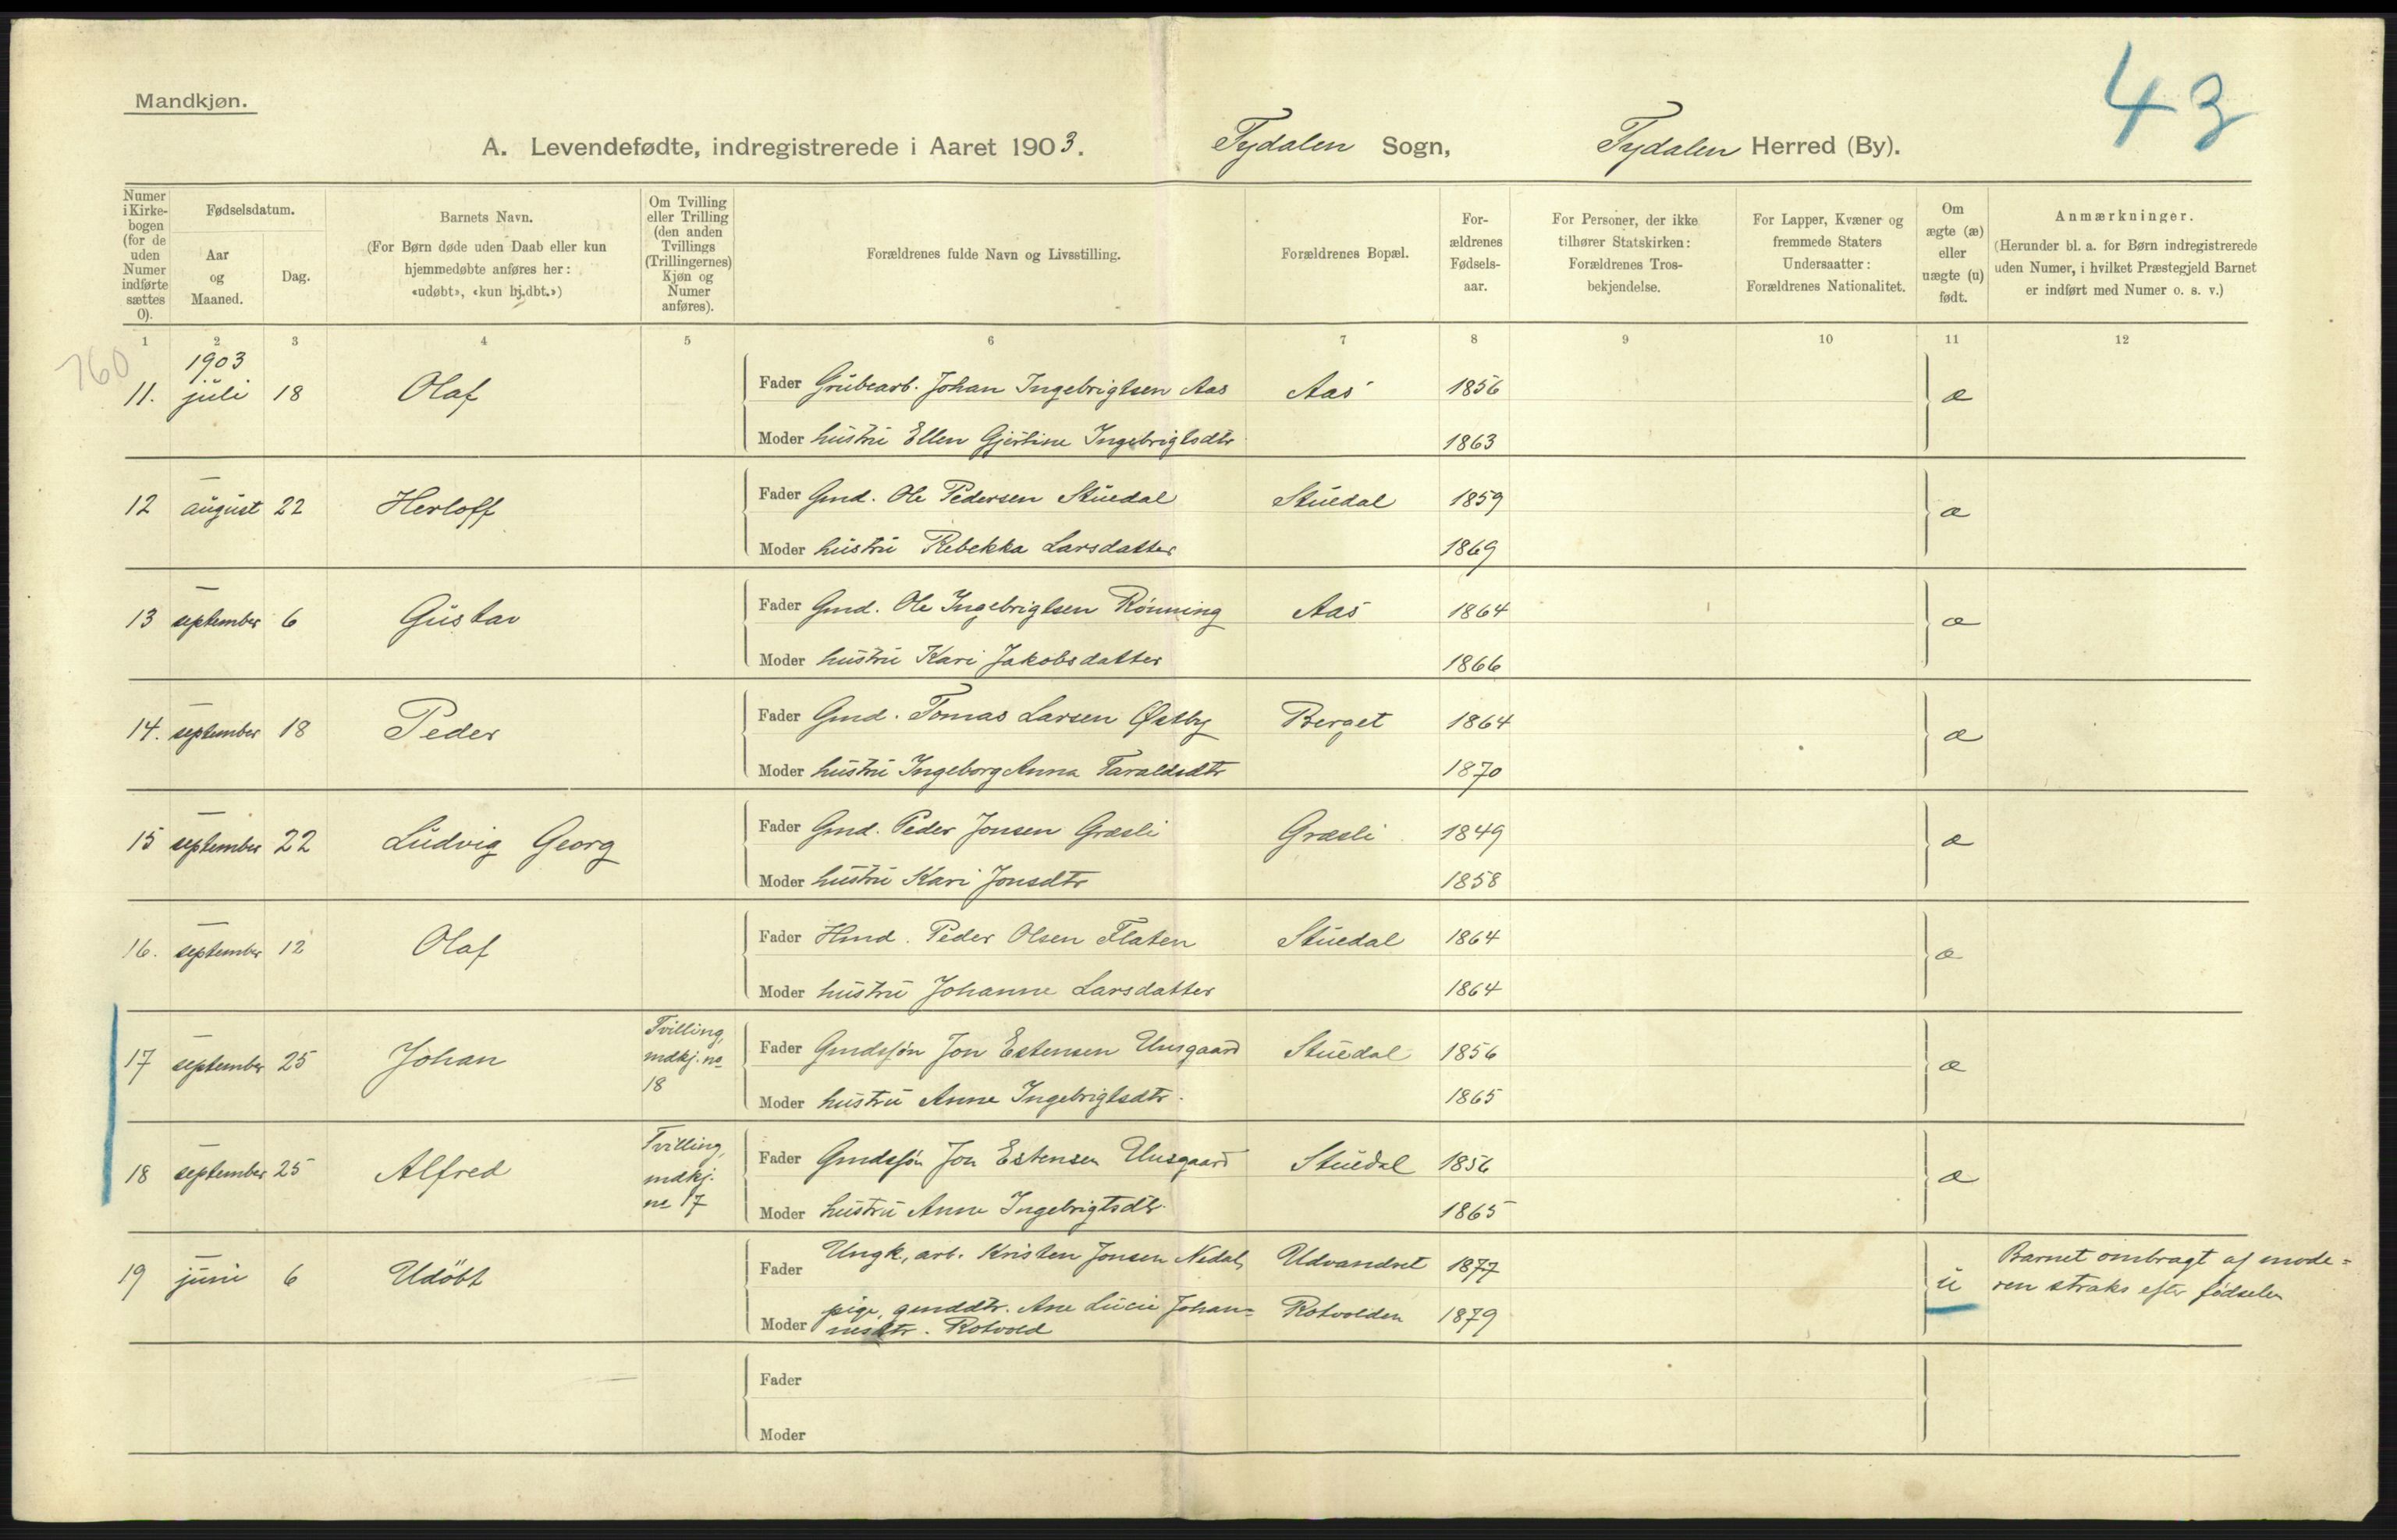 43
Mandkjøn.
A. Levendefødte, indregistrerede i Aaret 1903. Tydalen Sogn, Tydalen Herred (By).
Numer i Kirkebogen (for de uden Numer indførte sættes 0).
Fødselsdatum.
Aar og Maaned.
Dag.
Barnets Navn.
(For Børn døde uden Daab eller kun
hjemmedøbte anføres her:
«udøbt», «kun hj.dbt.»)
Om Tvilling
eller Trilling
(den anden
Tvillings
(Trillingernes)
Kjøn og
Numer
anføres).
Forældrenes fulde Navn og Livsstilling.
Forældrenes Bopæl.
For-
ældrenes
Fødsels-
aar.
For Personer, der ikke
tilhører Statskirken:
Forældrenes Tros-
bekjendelse.
For Lapper, Kvæner og
fremmede Staters
Undersaatter:
Forældrenes Nationalitet.
Om
ægte (æ)
eller
uægte (u)
født.
Anmærkninger.
(Herunder bl. a. for Børn indregistrerede
uden Numer, i hvilket Præstegjeld Barnet
er indført med Numer o. s. v.)
1 2 3 4 5 6 7 8 9 10 11 12
160
1903
11. juli 18 Olaf Fader Grubearb. Johan Ingebrigtsen Aas Aas 1856 æ
Moder hustru Ellen Gjertine Ingebrigtsdtr 1863
12 — august 22 Herloff Fader Gmd. Ole Pedersen Stuedal Stuedal 1859 æ
Moder hustru Rebekka Larsdatter 1869
13 — september 6 Gustav Fader Gmd. Ole Ingebrigtsen Rønning Aas 1864 æ
Moder hustru Kari Jakobsdatter 1866
14. — september 18 Peder Fader Gmd. Tomas Larsen Østby Berget 1864 æ
Moder hustru Ingeborg Anna Taraldsdtr 1870
15 — september 22 Ludvig Georg Fader Gmd. Peder Jonsen Græsli Græsli 1849 æ
Moder hustru Kari Jonsdtr 1858
16. — september 12 Olaf Fader Hmd. Peder Olsen Flaten Stuedal 1864 æ
Moder hustru Johanne Larsdatter 1864
17 — september 25 Johan Tvilling, mdkj. no 18 Fader Gmdssøn Jon Estensen Unsgaard Stuedal 1856 æ
Moder hustru Anne Ingebrigtsdtr. 1865
18 — september 25 Alfred Tvilling, mdkj. no 17 Fader Gmdssøn Jon Estensen Unsgaard Stuedal 1856 æ
Moder hustru Anne Ingebrigtsdtr. 1865
19 — juni 6 Udöbt Fader Ungk., arb. Kristen Jonsen Nedal, Udvandret 1877 u Barnet ombragt af mode=
ren straks efter fødselen
Moder pige, gmddtr. Ane Lucie Johan= Rotvolden 1879
nesdtr. Rotvold
Fader
Moder